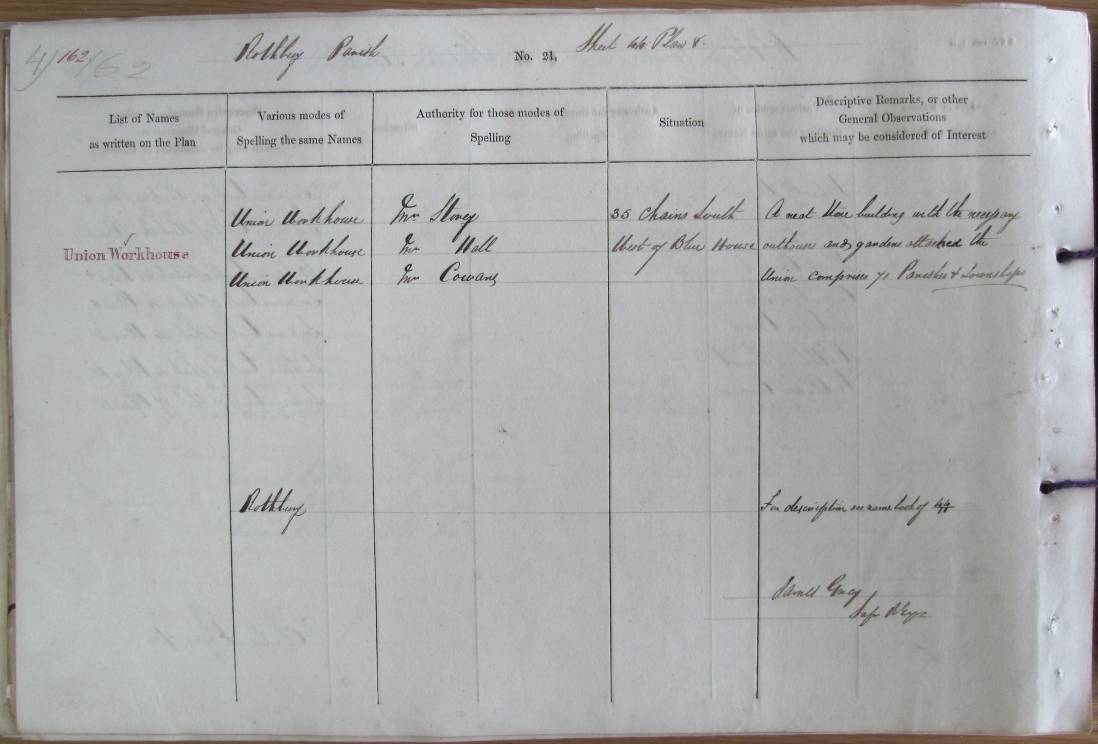 4/ 162/62
Rothbury Parish No. 21, Sheet 44 Plan 8.
List of Names
as written on the Plan
Various modes of
Spelling the same Names
Authority for those modes of
Spelling
Situation
Descriptive Remarks, or other
General Observations
which may be considered of Interest
Union Workhouse Mr Storey 35 Chains South A neat Stone building with the necessary
Union Workhouse Union Workhouse Mr Hall West of Blue House outhouses and gardens attached the
Union Workhouse Mr Cowans Union comprises 71 Parishes & Townships
Rothbury For description see name book of 44/7
James Grey
Sapr R Engs